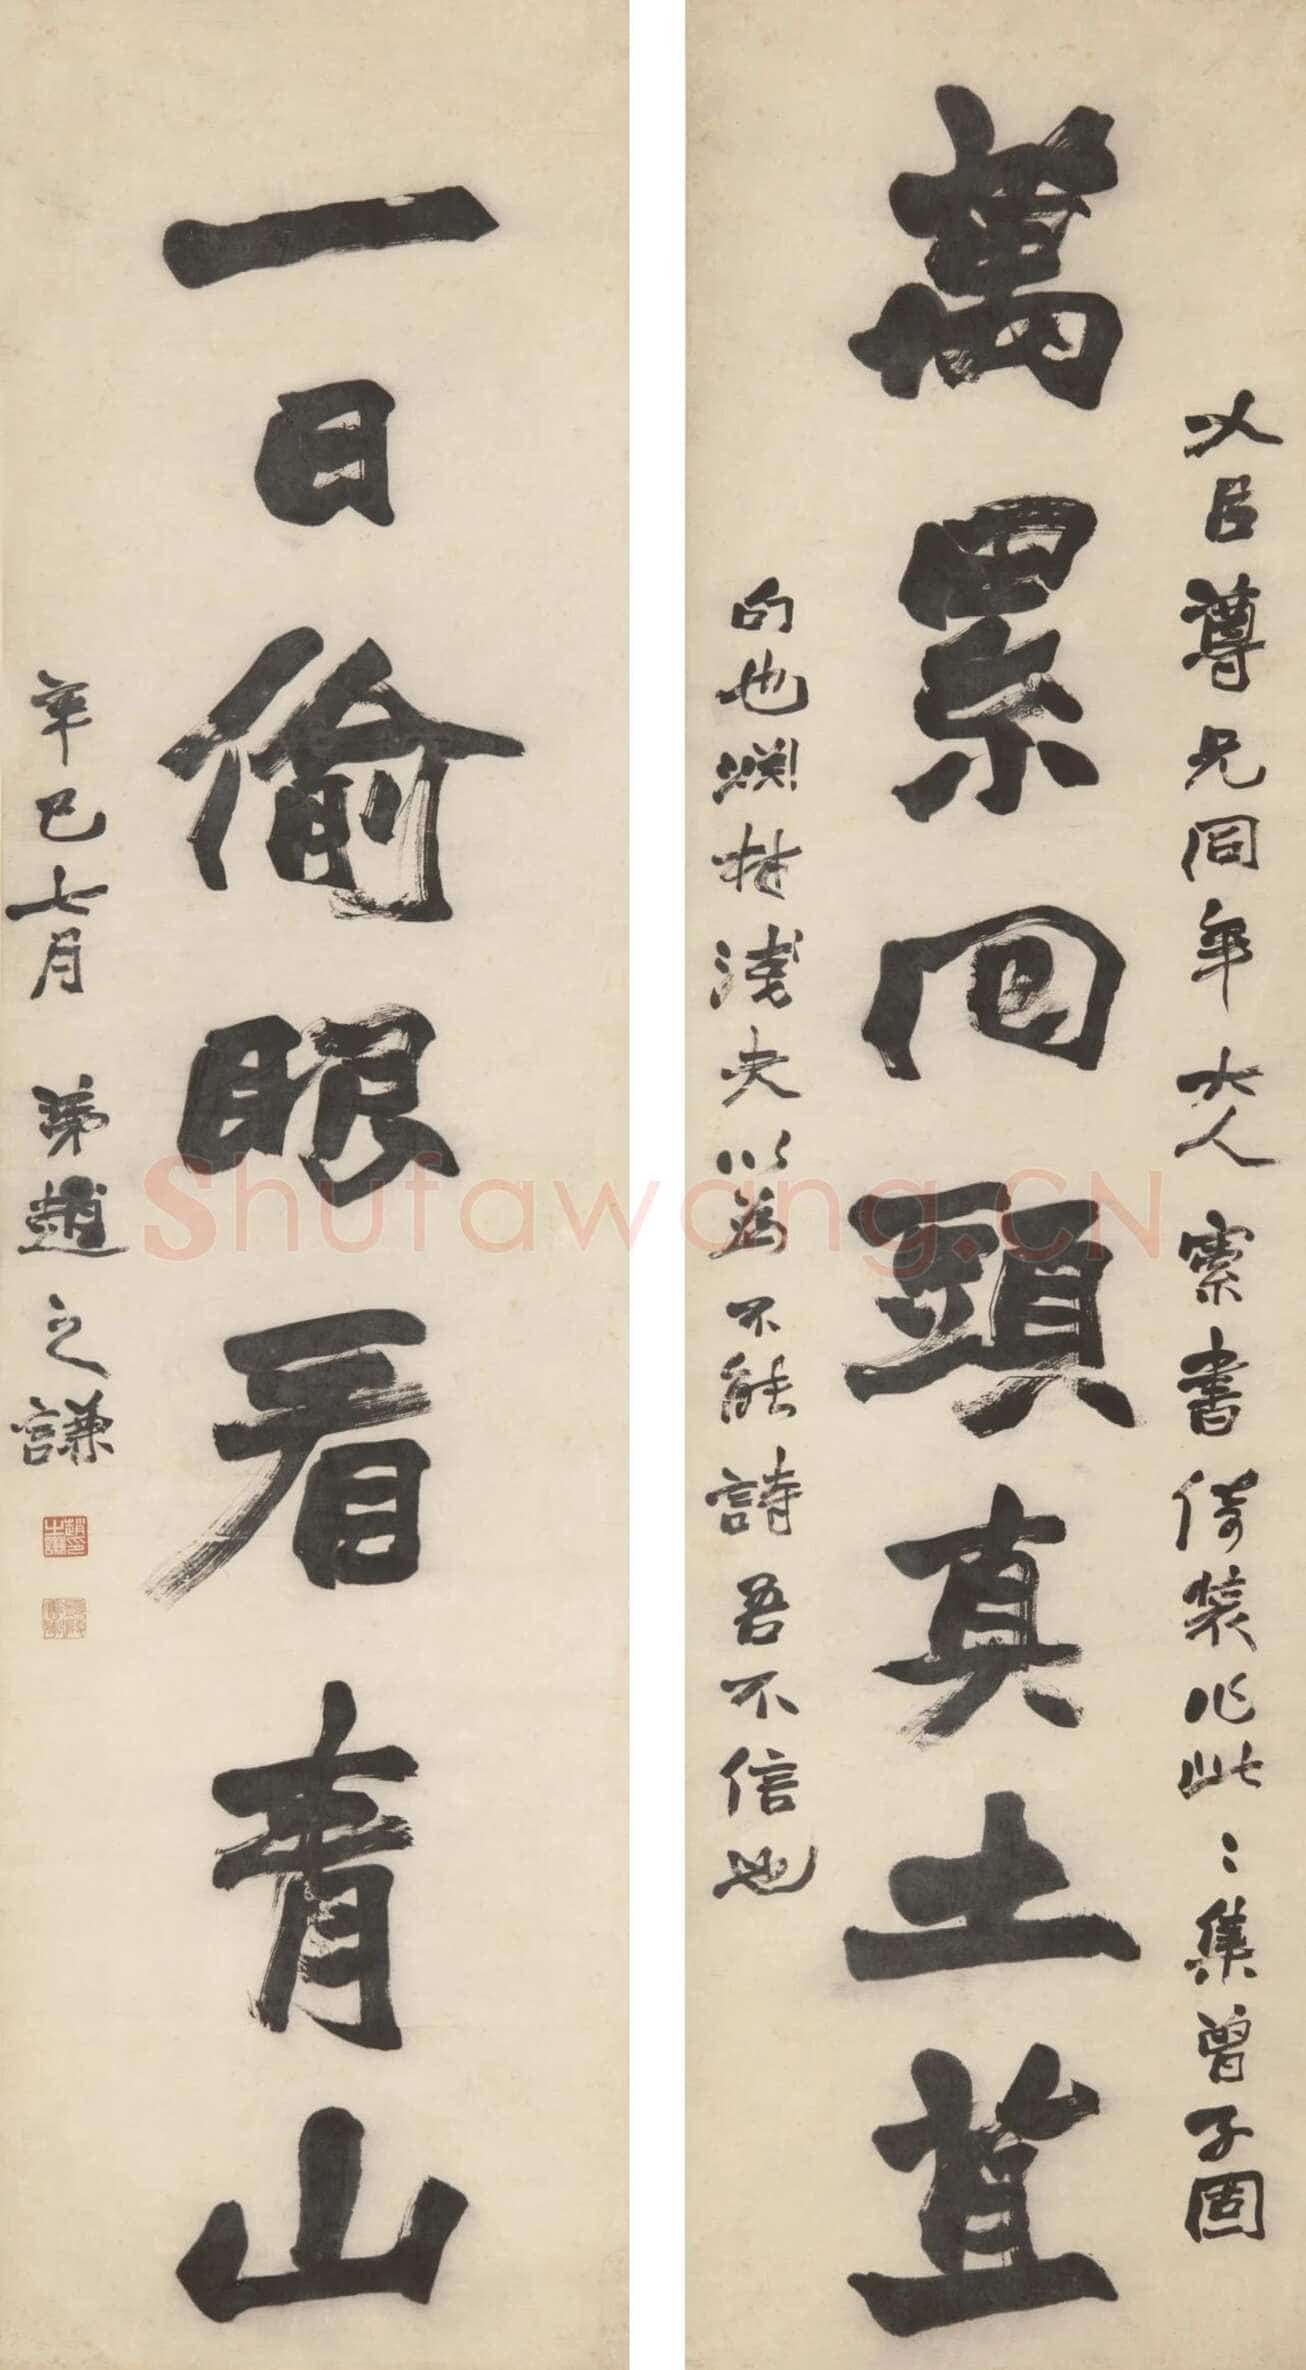 萬累回頭真土苴
以臣尊兄同年大人索書倚裝作此:集曾子固
句也爛材淺夫以為不能詩吾不信也
一日偷眼看青山
辛巳七月弟趙之謙
Shufawang.CN